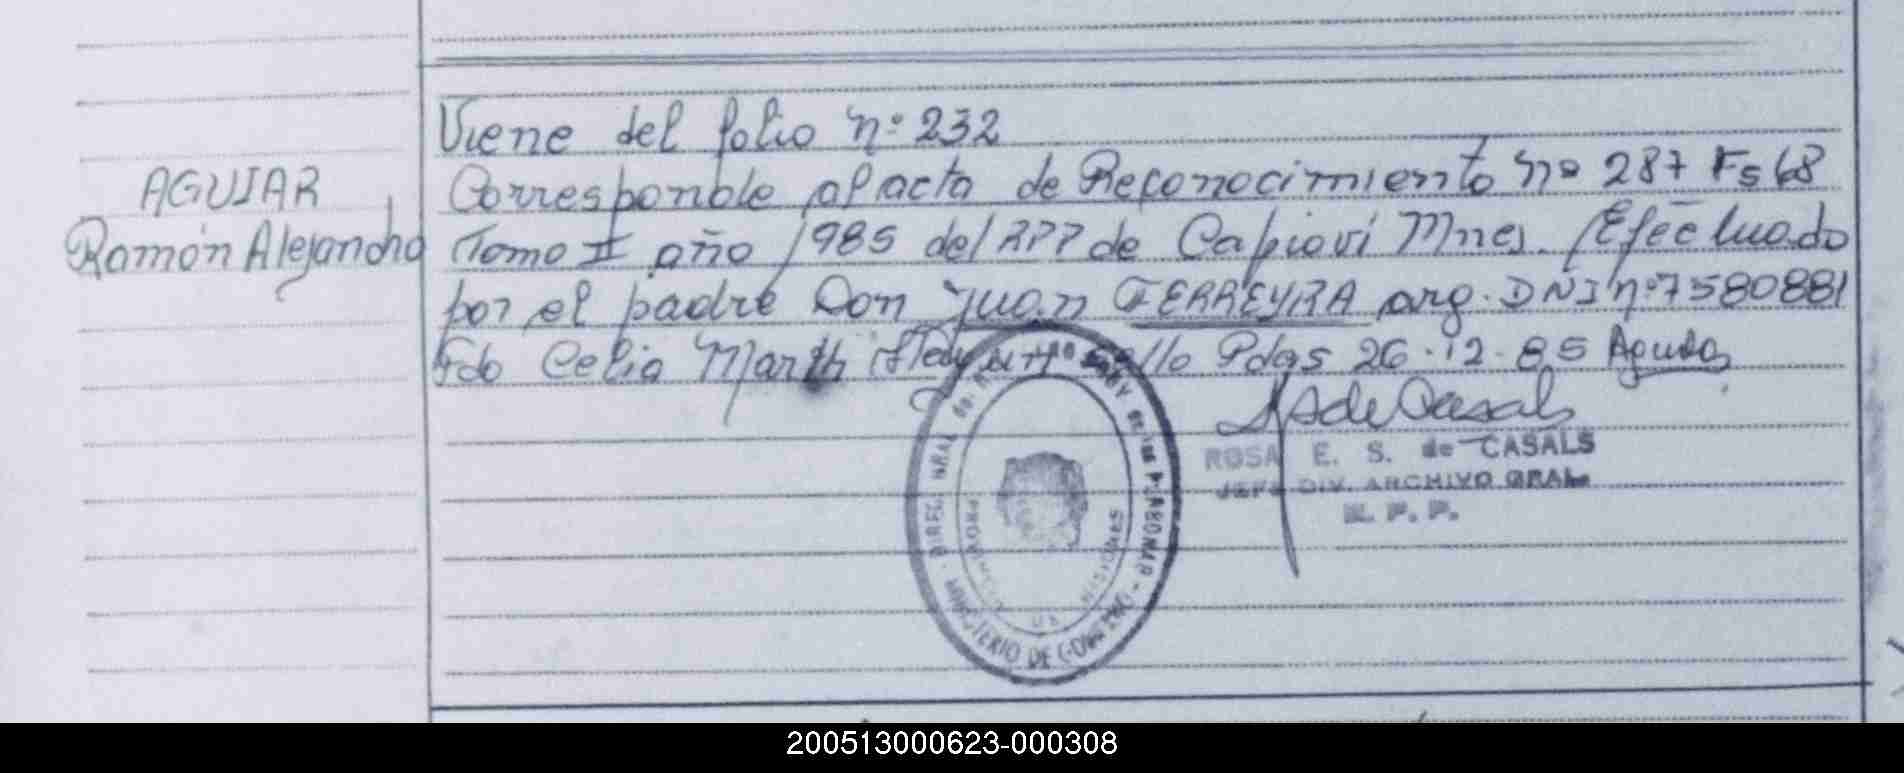 Viene del folio nº 232
AGUIAR
Ramón Alejandro
Corresponde al acta de Reconocimiento nº 287 Fs 68
Tomo II año 1985 del RPP de Capioví Mnes. Efectuado
por el padre Don Juan FERREYRA arg. DNI nº 7580881
Fdo Celia Marth Sello Pdas 26.12.85
ROSA E. S. de CASALS
JEFE DIV. ARCHIVO GRAL.
R. P. P.
MINISTERIO DE GOBIERNO
PROVINCIA DE MISIONES
200513000623-000308